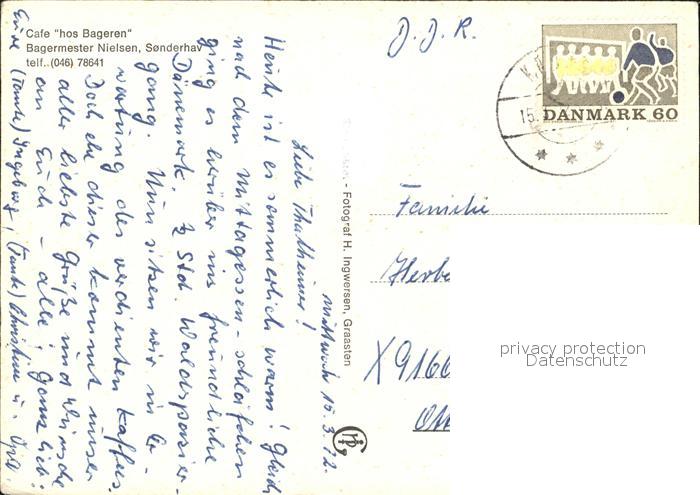 Cafe "hos Bageren"
Bagermester Nielsen, Sønderhav
telf. (046) 78641
D. D. R.
DANMARK 60
15.
- Fotograf H. Ingwersen, Graasten
Mittwoch 15. 3. 72.
Liebe Thalheimer!
Heute ist es sommerlich warm! Gleich
nach dem Mittagessen-schläfchen
ging es herüber ins freundliche
Dänemark, ½ Std. Waldspazier-
gang. Nun sitzen wir in Er-
wartung des verdienten Kaffees.
Doch ehe dieser kommt unser
aller liebste Grüße und Wünsche
an Euch - alle! Ganz lieb!
Eure (Tante) Ingeborg, (Tante) Christine u.
Familie
X 9166
privacy protection
Datenschutz